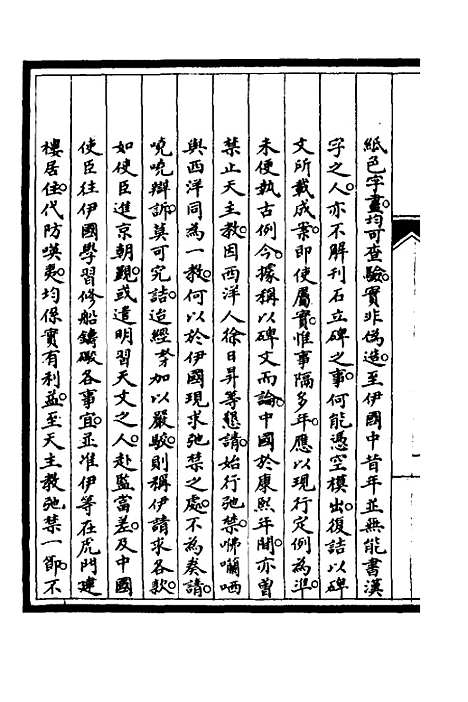 紙色字畫均可查驗實非偽造至伊國中昔年並無能書漢
字之人亦不解刊石立碑之事何能憑空模出復詰以碑
文所載成案即使屬實惟事隔多年應以現行定例為準
未便執古例今據稱以碑文而論中國於康熙年間亦曾
禁止天主教因西洋人徐日昇等懇請始行弛禁咈囒哂
與西洋同為一教何以於伊國現求弛禁之處不為奏請
嘵嘵辯訴莫可究詰迨經李加以嚴駮則稱伊請求各款
如使臣進京朝覲或遣明習天文之人赴監當差及中國
使臣往伊國學習修船鑄礮各事宜並准伊等在虎門建
樓居住代防㗸夷均係實有利益至天主教弛禁一節不